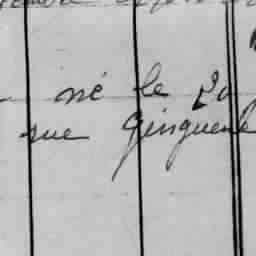 né le 20
rue Ginguené